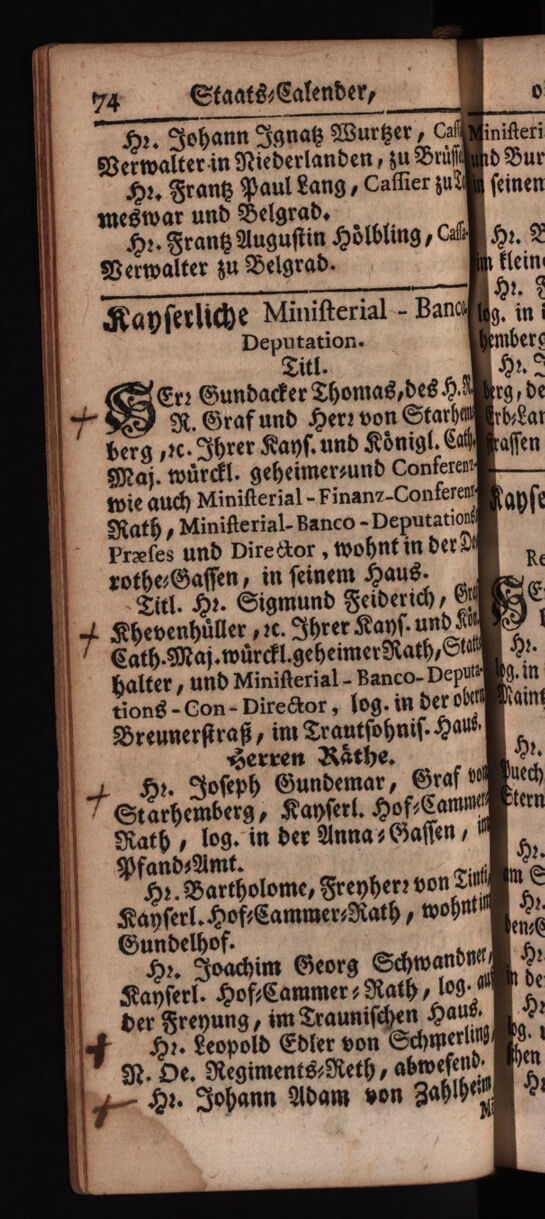 74 Staats-Calender,
Hr. Johann Ignatz Wurtzer, Cass
Verwalter in Niederlanden, zu Brüss
Hr. Frantz Paul Lang, Cassier zu
meswar und Belgrad.
Hr. Frantz Augustin Hölbling, Cassa-
Verwalter zu Belgrad.
Kayserliche Ministerial-Banco-
Deputation.
Titl.
HErr Gundacker Thomas, des H. R.
R. Graf und Herr von Starhem-
berg, ꝛc. Ihrer Kays. und Königl. Cath.
Maj. würckl. geheimer-und Conferenz-
wie auch Ministerial-Finanz-Conferenz-
Rath, Ministerial-Banco-Deputations-
Præses und Director, wohnt in der Do-
rothe-Gassen, in seinem Haus.
Titl. Hr. Sigmund Feiderich, Graf
Khevenhüller, ꝛc. Ihrer Kays. und Kön.
Cath. Maj. würckl. geheimer Rath, Statt-
halter, und Ministerial-Banco-Deputa-
tions-Con-Director, log. in der obern
Breunerstraß, im Trautsohnis. Haus.
Herren Räthe.
Hr. Joseph Gundemar, Graf von
Starhemberg, Kayserl. Hof-Cammer-
Rath, log. in der Anna-Gassen, im
Pfand-Amt.
Hr. Bartholome, Freyherr von Tinti,
Kayserl. Hof-Cammer-Rath, wohnt im
Gundelhof.
Hr. Joachim Georg Schwandner,
Kayserl. Hof-Cammer-Rath, log. auf
der Freyung, im Traunischen Haus.
Hr. Leopold Edler von Schmerling,
N. Oe. Regiments-Reth, abwesend.
Hr. Johann Adam von Zahlheim
Ministeri
und Bur
in seinem
Hr.
im klein
Hr.
log. in
hemberg
Hr.
berg, de
Erb-Lan
strassen
Kayse
Re
Hr.
log. in
Maintz
Hr.
Puech
Stern
Hr.
am S
Hr.
Hr.
in de
Hr.
log.
chen
Hr.